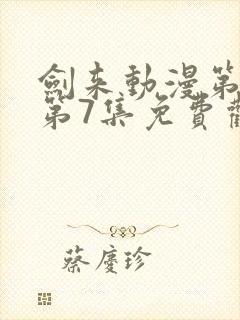 劍来動漫第
第7集免費觀
蔡慶珍